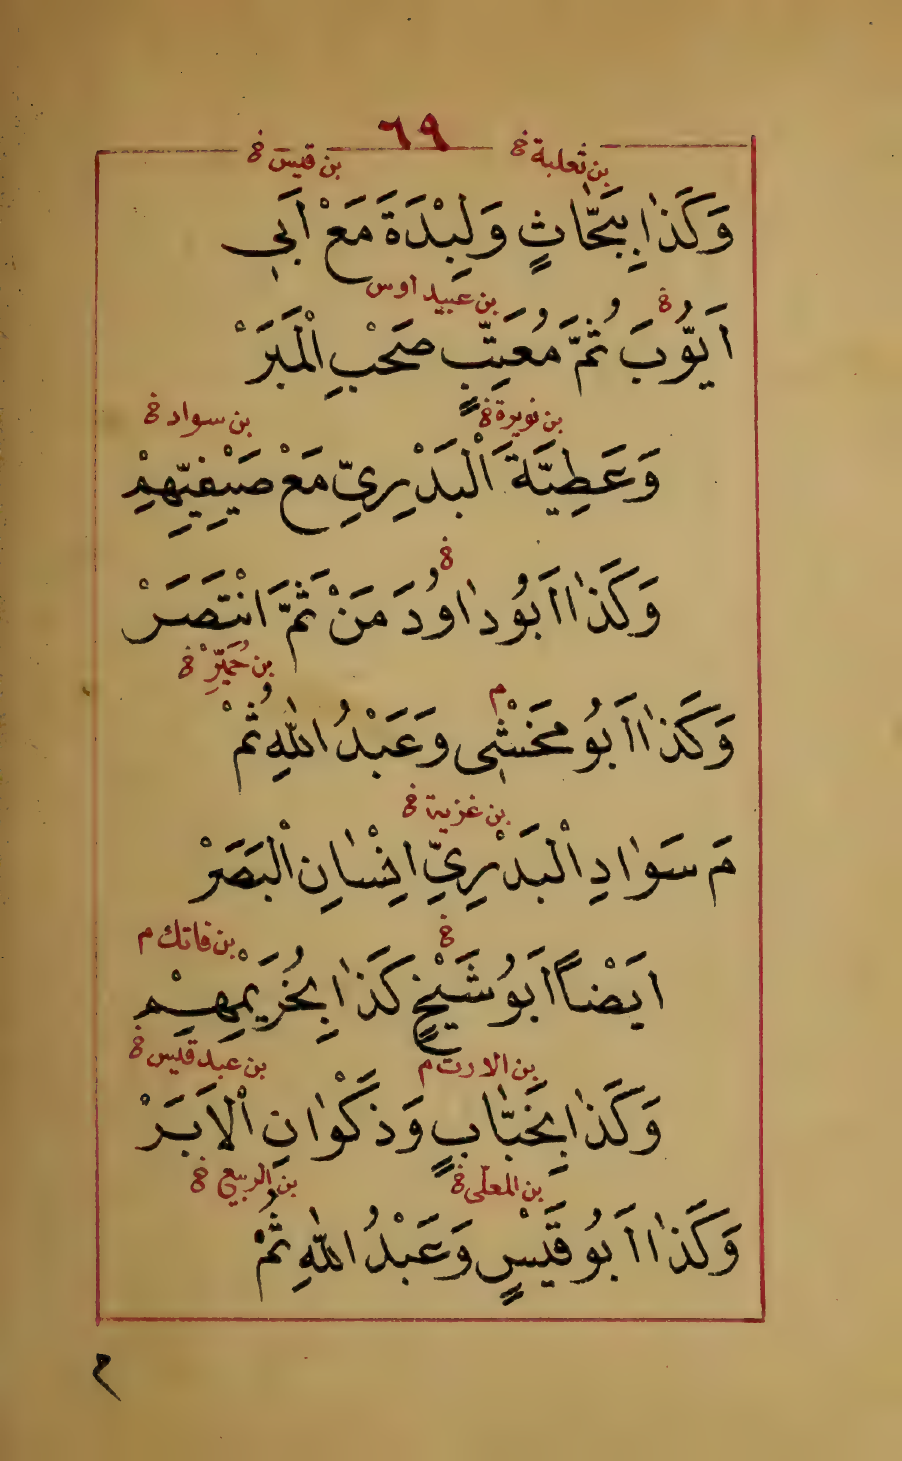 ٦٩
بن ثعلبة خ بن قيس خ
وَكَذٰا بِبَحَّاثٍ وَلِبْدَةَ مَعْ اَبٖى
خ بن عبيد اوس
اَيُّوبَ ثُمَّ مُعَتِّبٍ صَحْبِ الْمَبَرْ
بن نويرة خ بن سواد خ
وَعَطِيَّةَ الْبَدْرِيِّ مَعْ صَيْفِيِّهِمْ
خ
وَكَذٰا اَبُو دٰاوُدَ مَنْ ثَمَّ انْتَصَرْ
بن حُمَيِّرْ خ
م
وَكَذٰا اَبُو مَخْشٖى وَعَبْدُ اللّٰهِ ثُمْ
بن غزية خ
مَ سَوٰادِ الْبَدْرِيِّ اِنْسٰانِ الْبَصَرْ
خ بن فاتك م
اَيْضًا اَبُو شَيْخٍ كَذٰا بِخُرَيْمِهِمْ
بن الارت م بن عبد قيس خ
وَكَذٰا بِخَبّٰابٍ وَذَكْوٰانِ الْاَبَرْ
بن المعلّى خ بن الربيع خ
وَكَذٰا اَبُو قَيْسٍ وَعَبْدُ اللّٰهِ ثُمْ
م